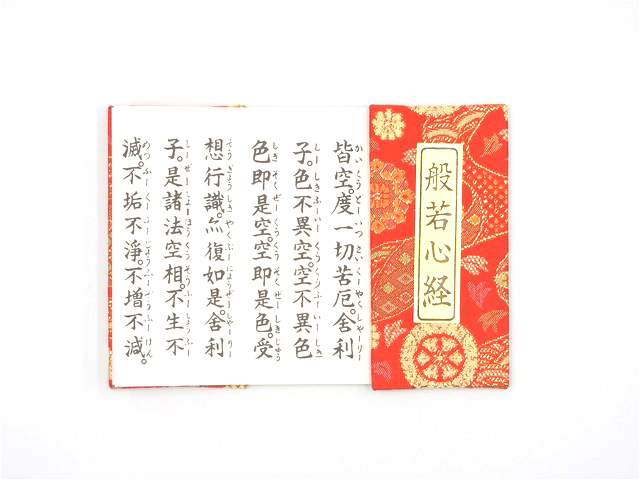 般若心経
皆空。度一切苦厄。舎利
子。色不異空。空不異色
色即是空。空即是色。受
想行識。亦復如是。舎利
子。是諸法空相。不生不
滅。不垢不淨。不増不減。